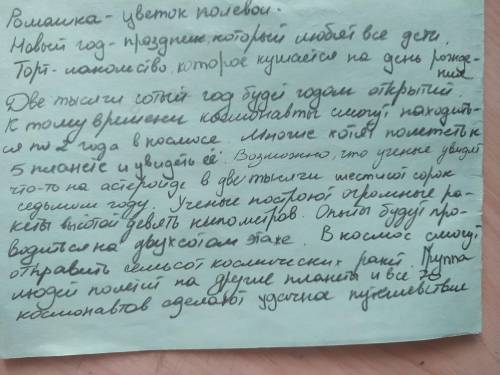 Ромашка - цветок полевой.
Новый год - праздник, который любят все дети.
Торт - лакомство, которое кушается на день рожде-
ния
Две тысячи сотый год будет годом открытий.
К тому времени космонавты смогут находить-
ся по 2 года в космосе. Многие хотят полететь к
5 планете и увидеть её. Возможно, что ученые увидят
что-то на астеройде в две тысячи шестисот сорок
седьмом году. Ученые построют огромные ра-
кеты высотой девять километров. Опыты будут про-
водиться на двухсотом этаже. В космос смогут
отправить семьсот космических ракет. Группа
людей полетит на другие планеты и все 70
космонавтов сделают удачное путешествие